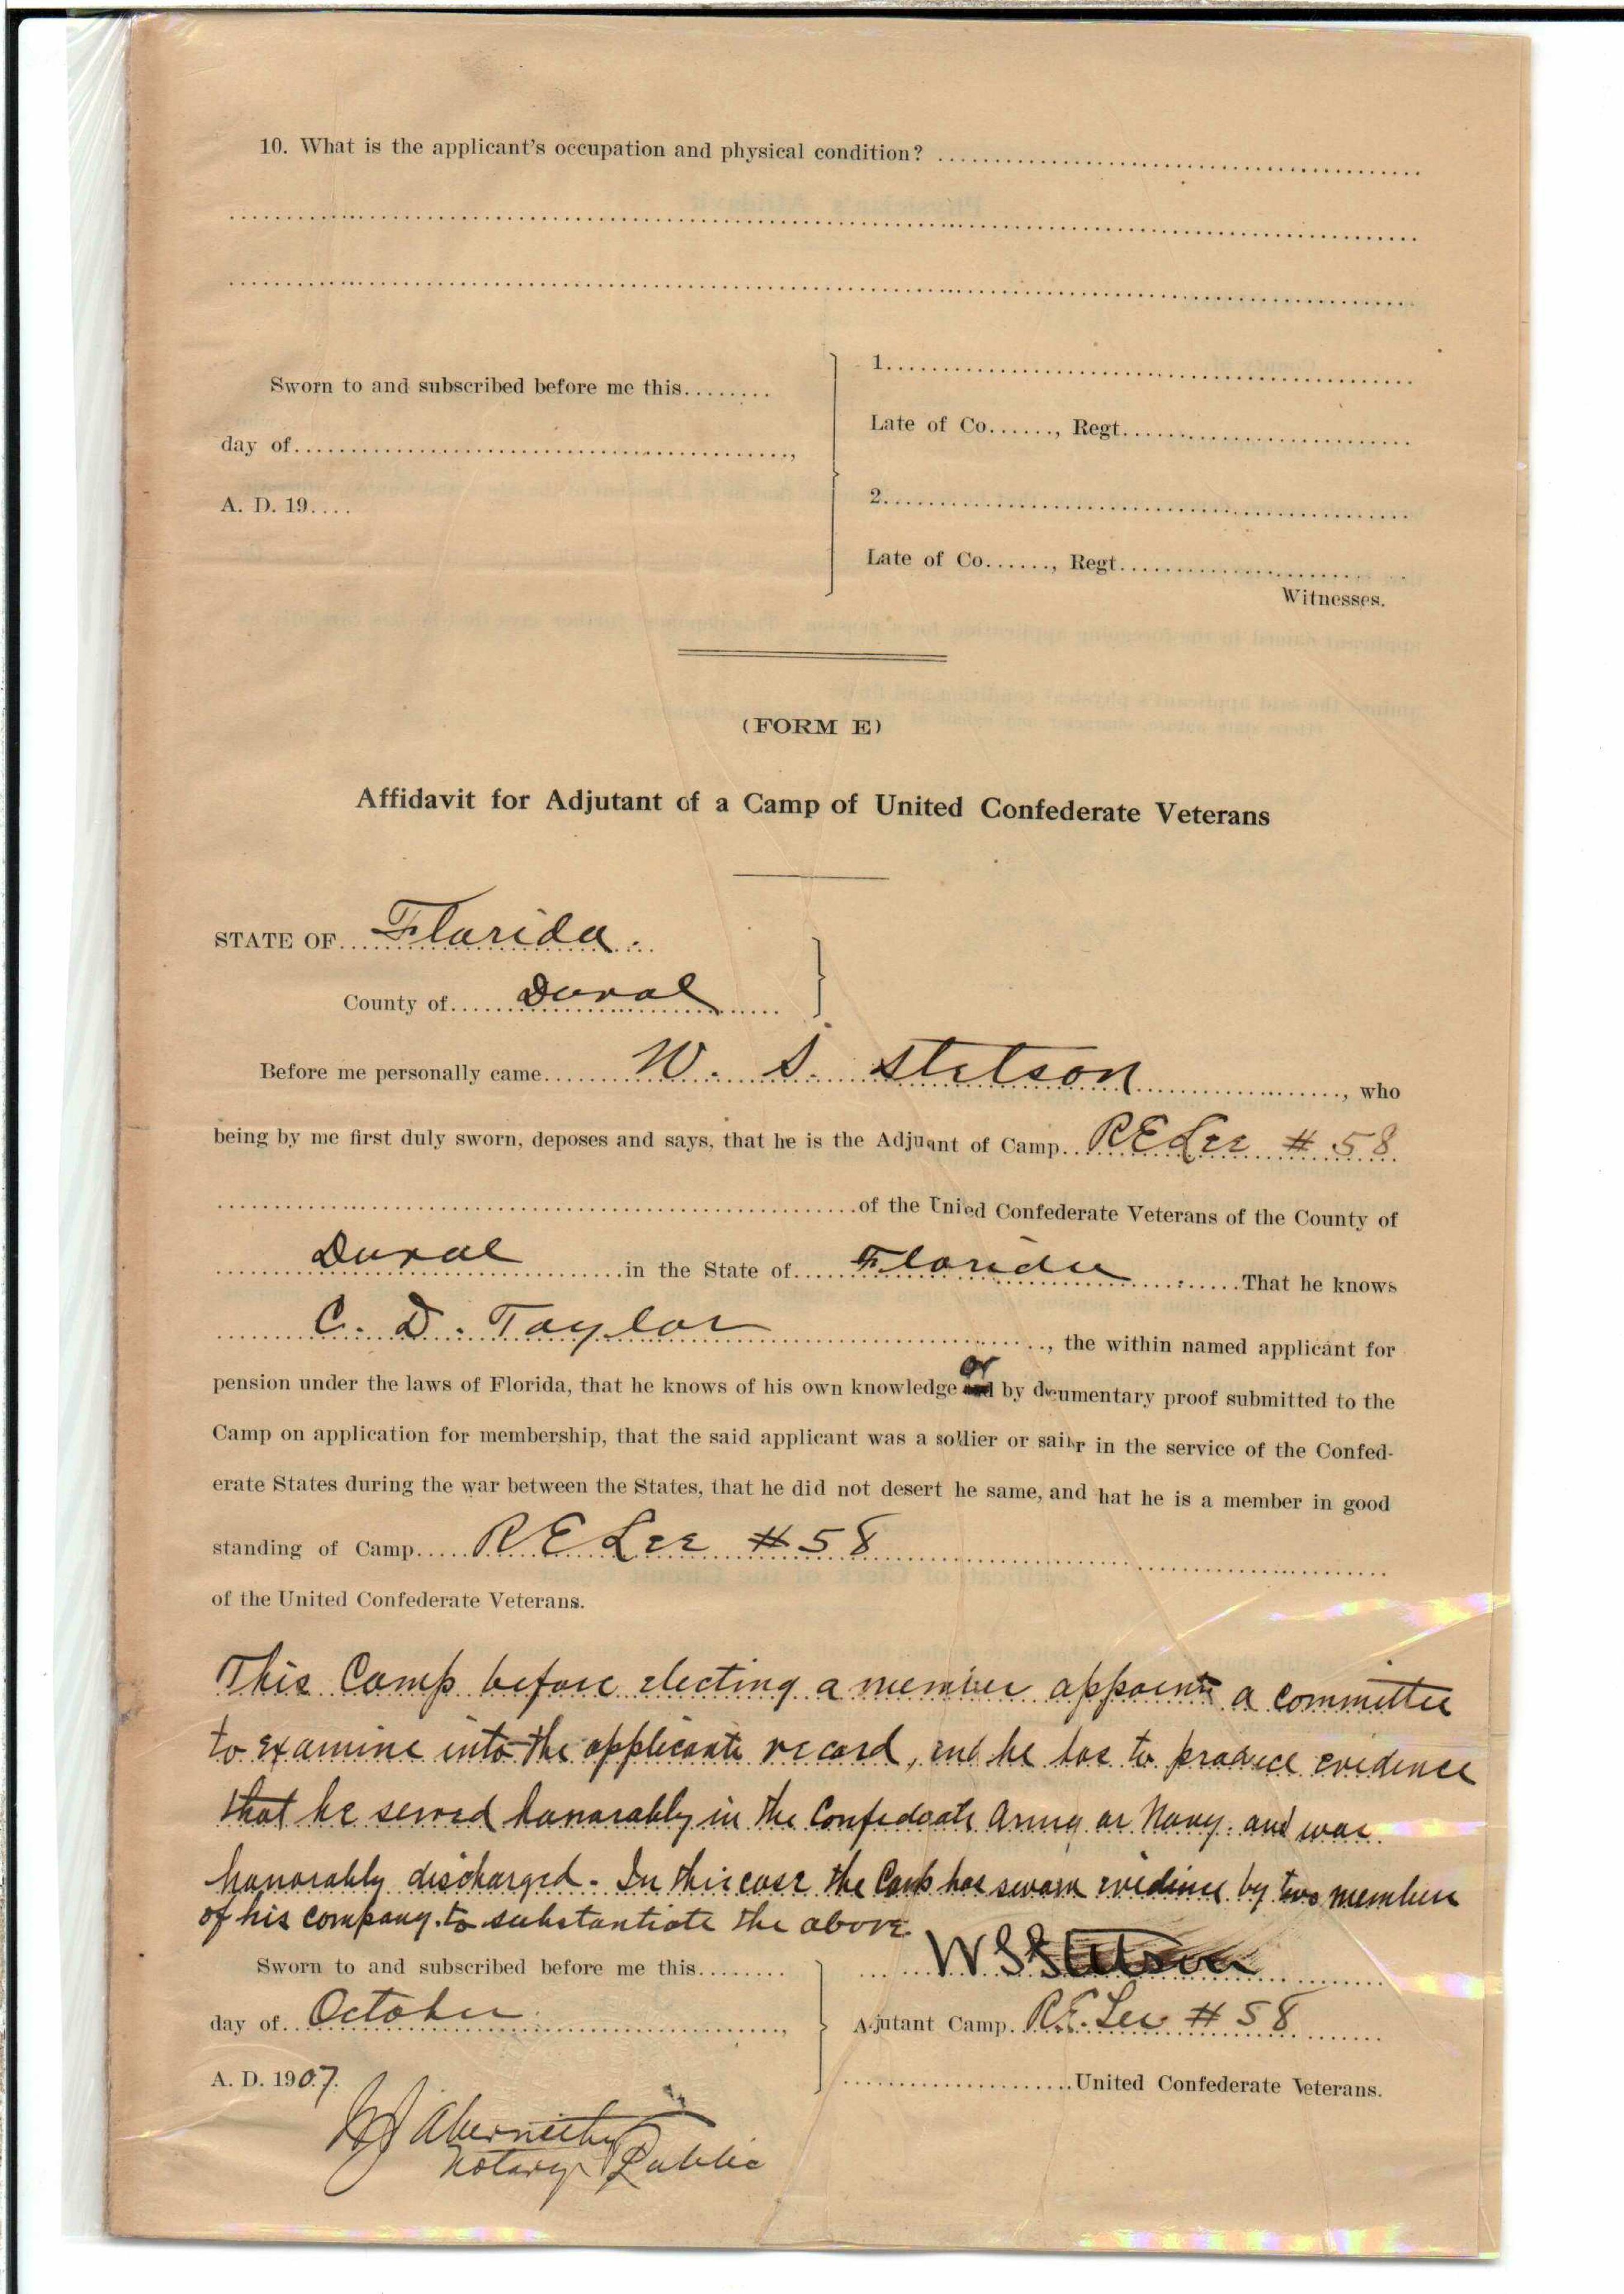 10. What is the applicant's occupation and physical condition?
Sworn to and subscribed before me this........
day of................,
A. D. 19....
1.
Late of Co......, Regt.
2.
Late of Co......, Regt.
Witnesses.
(FORM E)
Affidavit for Adjutant of a Camp of United Confederate Veterans
STATE OF Florida.
County of Duval
Before me personally came W. S. Stetson, who
being by me first duly sworn, deposes and says, that he is the Adjuant of Camp R E Lee # 58
of the Unied Confederate Veterans of the County of
Duval in the State of Florida That he knows
C. D. Taylor, the within named applicant for
or
pension under the laws of Florida, that he knows of his own knowledge and by documentary proof submitted to the
Camp on application for membership, that the said applicant was a soldier or sailr in the service of the Confed-
erate States during the war between the States, that he did not desert he same, and hat he is a member in good
standing of Camp R E Lee # 58
of the United Confederate Veterans.
This Camp before electing a member appoints a committee
to examine into the applicants record, and he has to produce evidence
that he served honorably in the Confedeate Army or Navy. and was
honorably discharged - In this case the Camp has sworn evidence by two members
of his company to substantiate the above.
Sworn to and subscribed before me this........
W S Stetson
day of October,
Ajutant Camp. R. E. Lee # 58
A. D. 1907.
United Confederate Veterans.
Abernethy
Notary Public